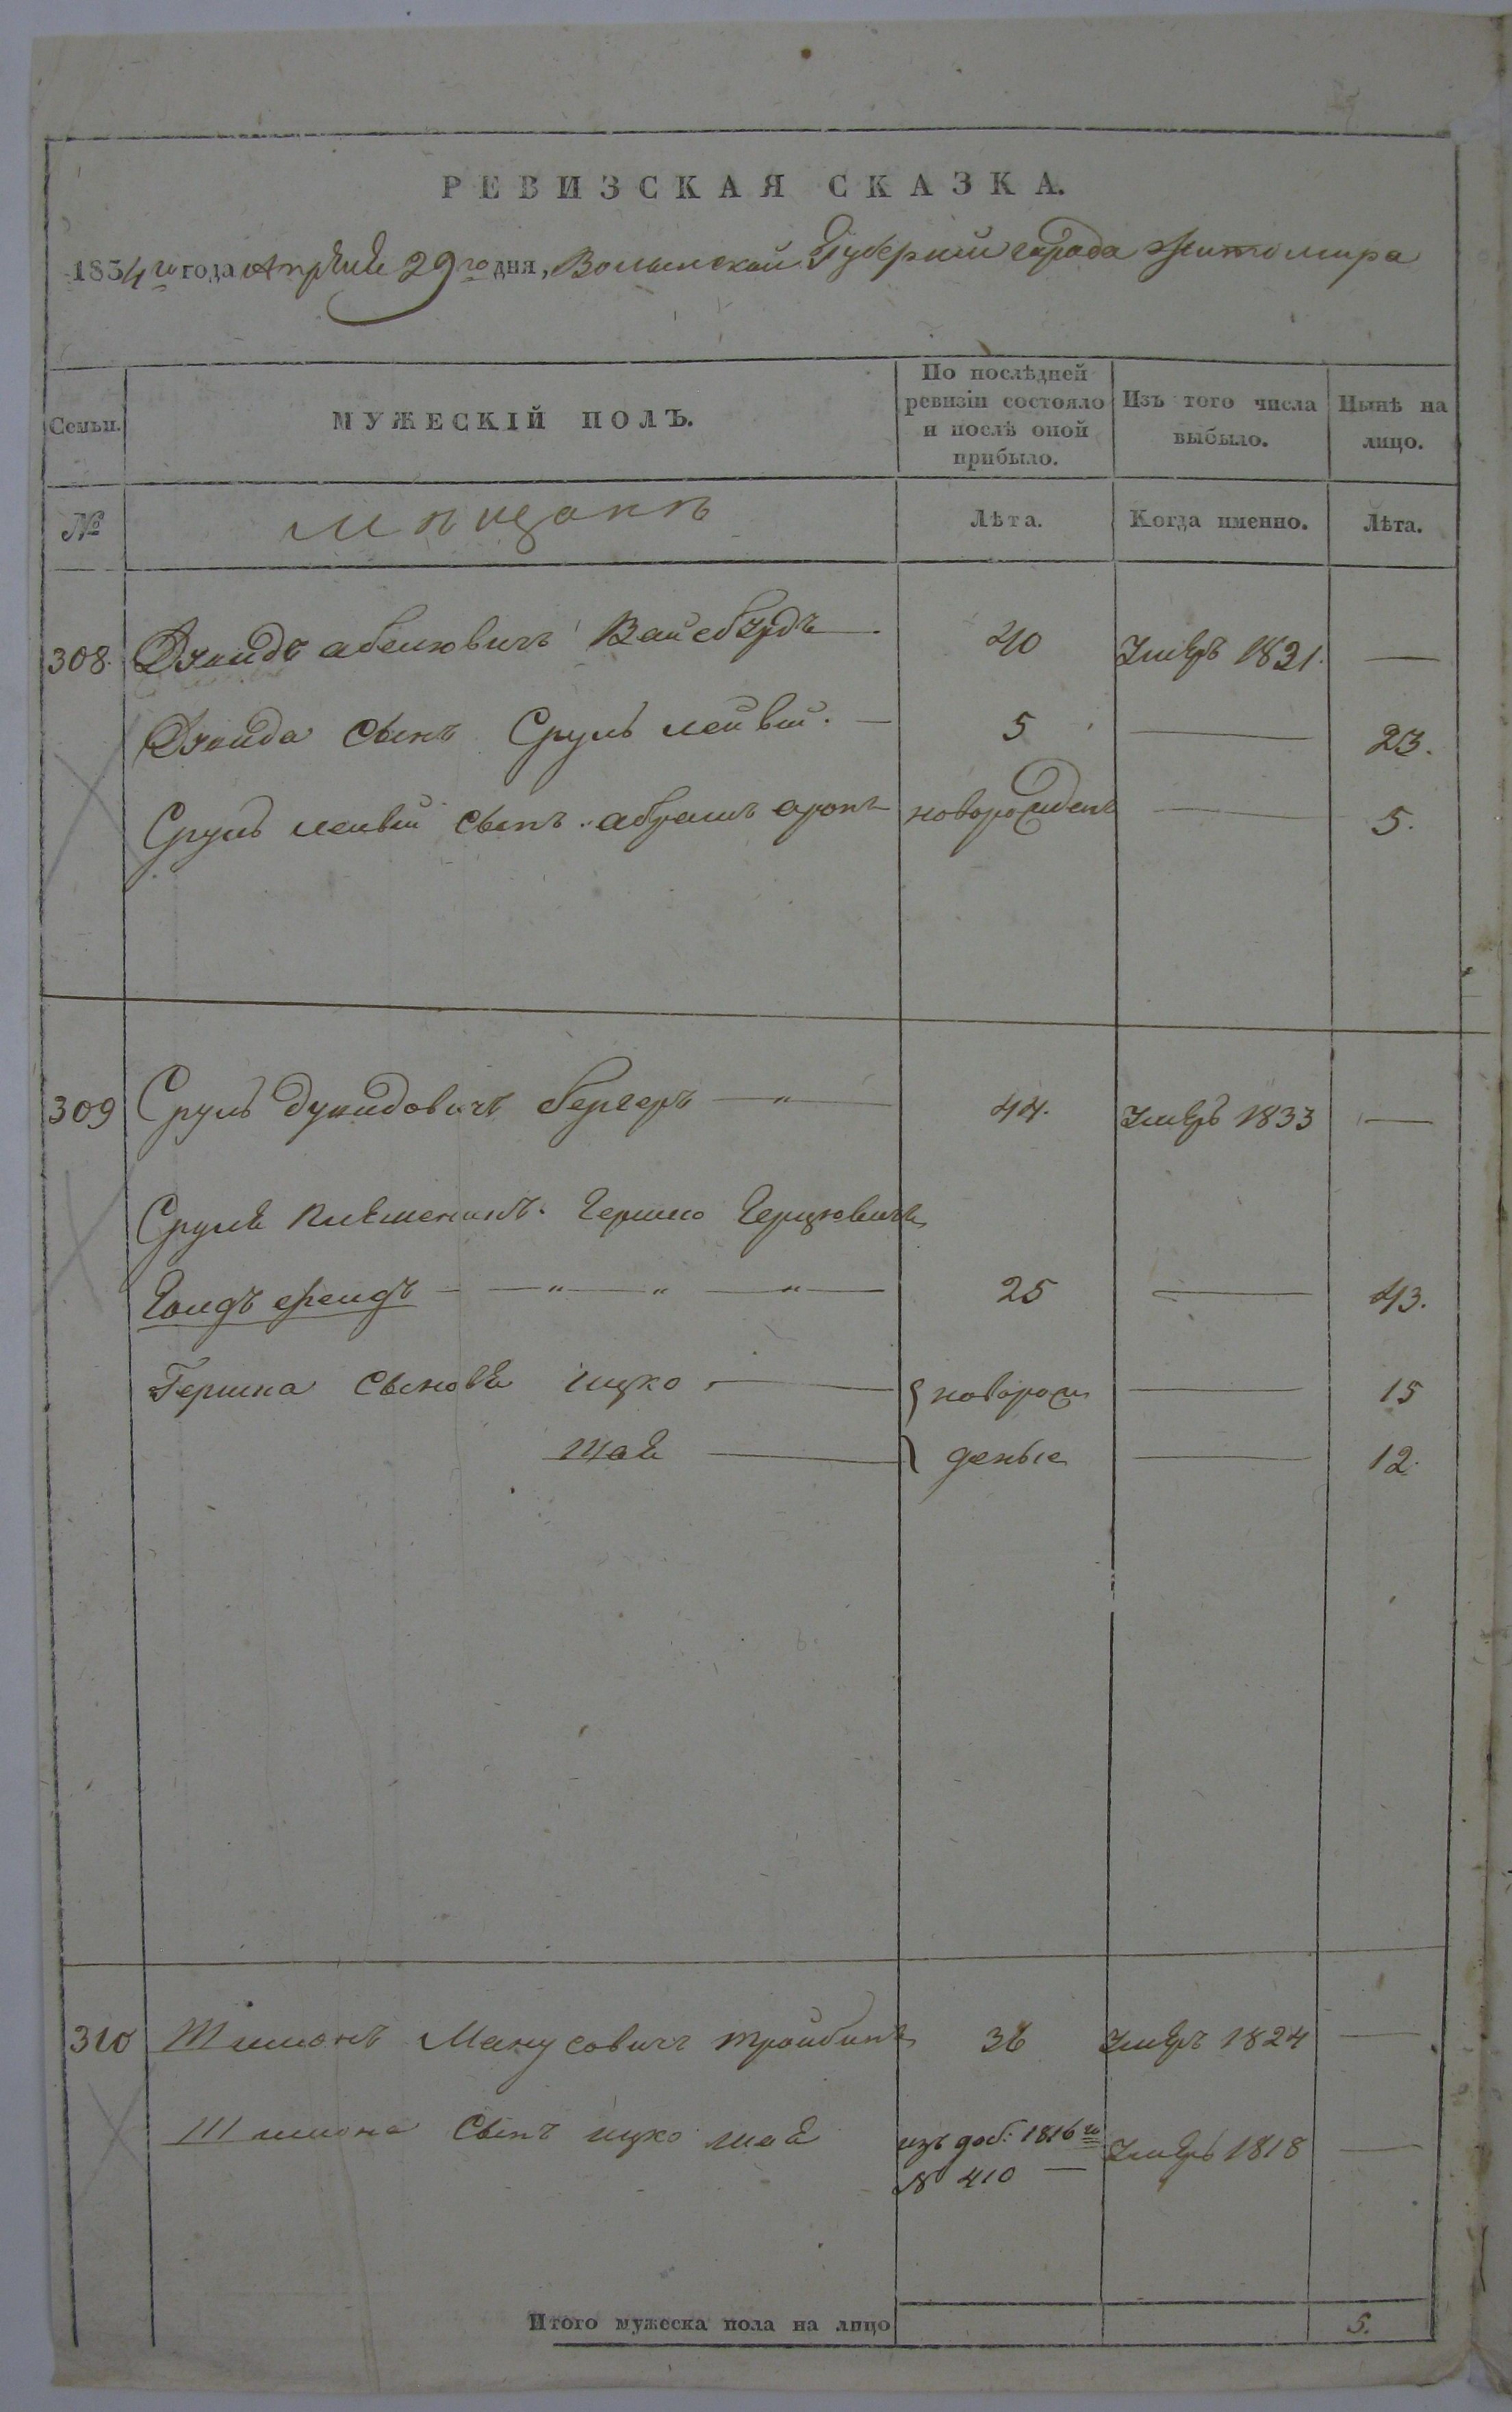 РЕВИЗСКАЯ СКАЗКА.
1834го года Апреля 29го дня, Волынской Губернии города Житомира
Семьи. МУЖЕСКІЙ ПОЛЪ. По послѣдней ревизіи состояло и послѣ оной прибыло. Изъ того числа выбыло. Нынѣ на лицо.
№ мещане Лѣта. Когда именно. Лѣта.
308. Дувидъ абелювичъ Вайсбурдъ 40 Умеръ 1831. —
Дувида сынъ Сруль лейвій. — 5 — 23.
Сруль лейвій сынъ абрамъ аронъ новорожденъ — 5.
309 Сруль дувидовичъ бергеръ — 44. Умеръ 1833 —
Сруля племенникъ Гершко Герцковичъ
Голдъ фелдъ — 25 — 43.
Гершка сыновя ицко — новорож — 15
Шая — деные — 12.
310 Шимонъ Манусовичъ тройбинъ 36 Умеръ 1824 —
Шимона сынъ ицко шая изъ доб: 1816го № 410 — Умеръ 1818 —
Итого мужеска пола на лицо 5.